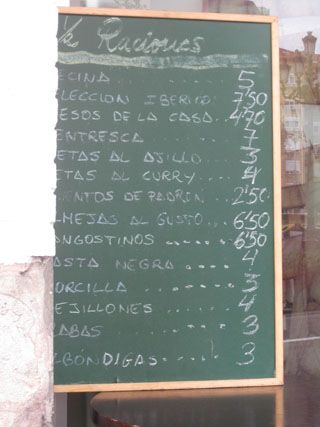 ½ Raciones
ECINA 5
ELECCION IBERICO 7'50
ESOS DE LA CASA 4'70
ENTRESCA 7
ETAS AL AJILLO 3
ITAS AL CURRY 4
IENTOS DE PADRON 2'50
LMEJAS AL GUSTO 6'50
ANGOSTINOS 6'50
ASTA NEGRA 4
ORCILLA 3
EJILLONES 4
ABAS 3
LBÓNDIGAS 3